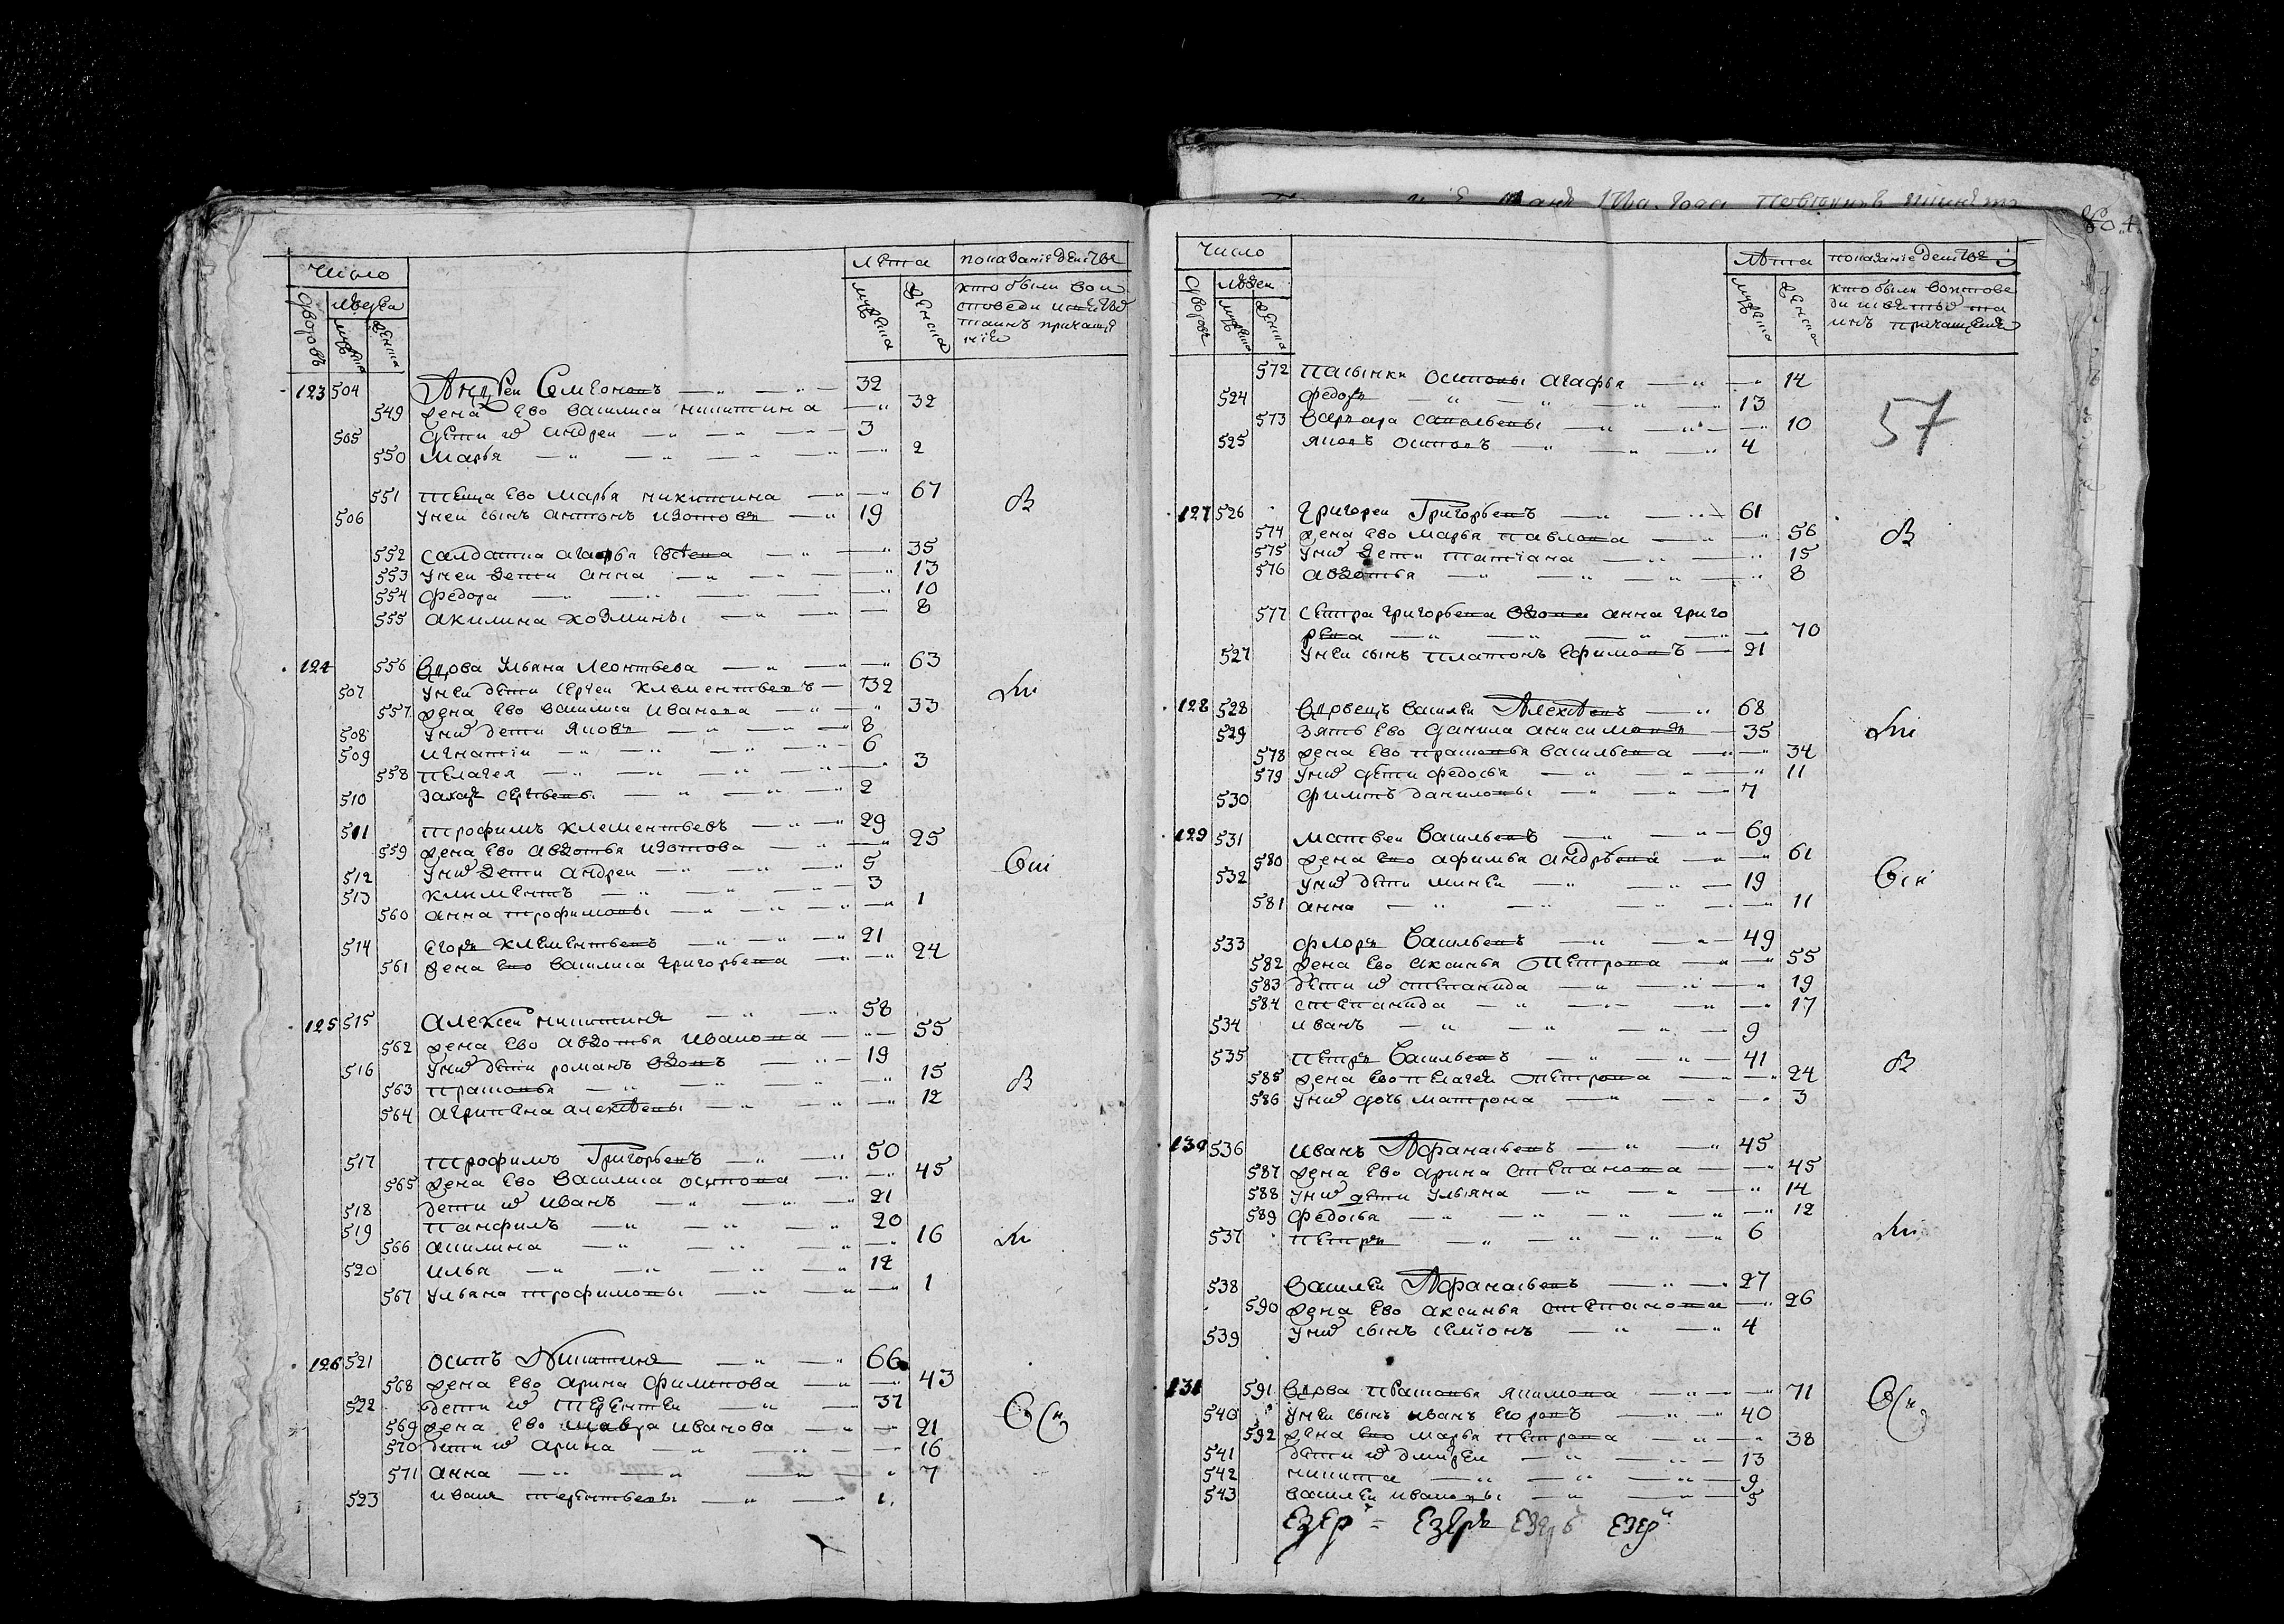 Число
Лета
показание действъ
дворовъ
людеи
мужеска
женска
мужеска
женска
кто были во и
споведи и светых
таинъ причаще
нiи
123 504 Андреи Семеоновъ 32
549 жена Ево Василиса никитина 32
505 дети их андреи 3
550 Марья 2
551 теща Ево Марья никитина 67
506 у неи сынъ антонъ изотовъ 19
552 салдатка агафья Евсѣева 35
553 у неи дети анна 13
554 федора 10
555 акилина козмины 8
124 556 вдова Ульяна Леонтьева 63
507 у неи дети сергеи клементьевъ 32
557 жена Ево василиса Иванова 33
508 у них дети Яковъ 8
509 игнатiи 6
558 пелагея 3
510 захаръ сергѣевы 2
511 трофимъ клементьевъ 29
559 жена Ево авдотья изотова 25
512 у них дети андреи 5
513 климентъ 3
560 анна трофимовы 1
514 егоръ клементьевъ 21
561 жена Ево василиса григорьева 24
125 515 алексеи никитинъ 58
562 жена Ево авдотья Иванова 55
516 у них дети романъ вдовъ 19
563 прасковья 15
564 агрипена алексѣевы 12
517 трофимъ Григорьевъ 50
565 жена Ево Василиса осипова 45
518 дети их Иванъ 21
519 панфилъ 20
566 акилина 16
520 илья 12
567 ульяна трофимовы 1
126 521 осипъ Никитинъ 66
568 жена Ево арина филипова 43
522 дети их терентеи 37
569 жена Ево мавра иванова 21
570 дети их арина 16
571 анна 7
523 иванъ терентьевы 1
Число
Лѣта
показанiе действ
дворовъ
людеи
мужеска
женска
мужеска
женска
кто были во испове
ди и светых та
инъ причащенiи
572 пасынки осиповы агафья 14
524 федоръ 13
573 варвара савельевы 10
525 яковъ осиповъ 4
57
127 526 Григореи Григорьевъ 61
574 жена Ево марья павлова 56
575 у них дети татiана 15
576 авдотья 8
577 сестра григорьева вдова анна григо
рьева 70
527 у неи сынъ платонъ Ефимовъ 21
128 528 вдовецъ василеи Алексѣевъ 68
529 зять Ево данила анисимовъ 35
578 жена Ево прасковья васильева 34
579 у них дети федосья 11
530 филипъ даниловы 7
129 531 матвеи Васильевъ 69
580 жена Ево афимья андрѣева 61
532 у них дети минеи 19
581 анна 11
533 флоръ Васильевъ 49
582 жена Ево аксинья петрова 55
583 дети их степанида 19
584 степанида 17
534 иванъ 9
535 петръ Васильевъ 41
585 жена Ево пелагея петрова 24
586 у них дочь матрона 3
130 536 иванъ Афанасьевъ 45
587 жена Ево арина степанова 45
588 у них дети ульяна 14
589 федосья 12
537 петръ 6
538 василеи Афанасьевъ 27
590 жена Ево аксинья степанова 26
539 у них сынъ семiонъ 4
131 591 вдова прасковья якимова 71
540 у неи сынъ иванъ егоровъ 40
592 жена Ево марья петрова 38
541 дети их дмитреи 13
542 никита 9
543 василеи ивановы 5